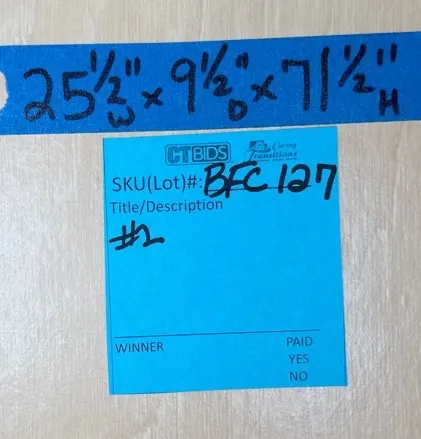 25 1/2" W x 9 1/2" D x 71 1/2" H
CT BIDS Caring Transitions
SKU(Lot)#: BFC 127
Title/Description
#2
WINNER PAID
YES
NO